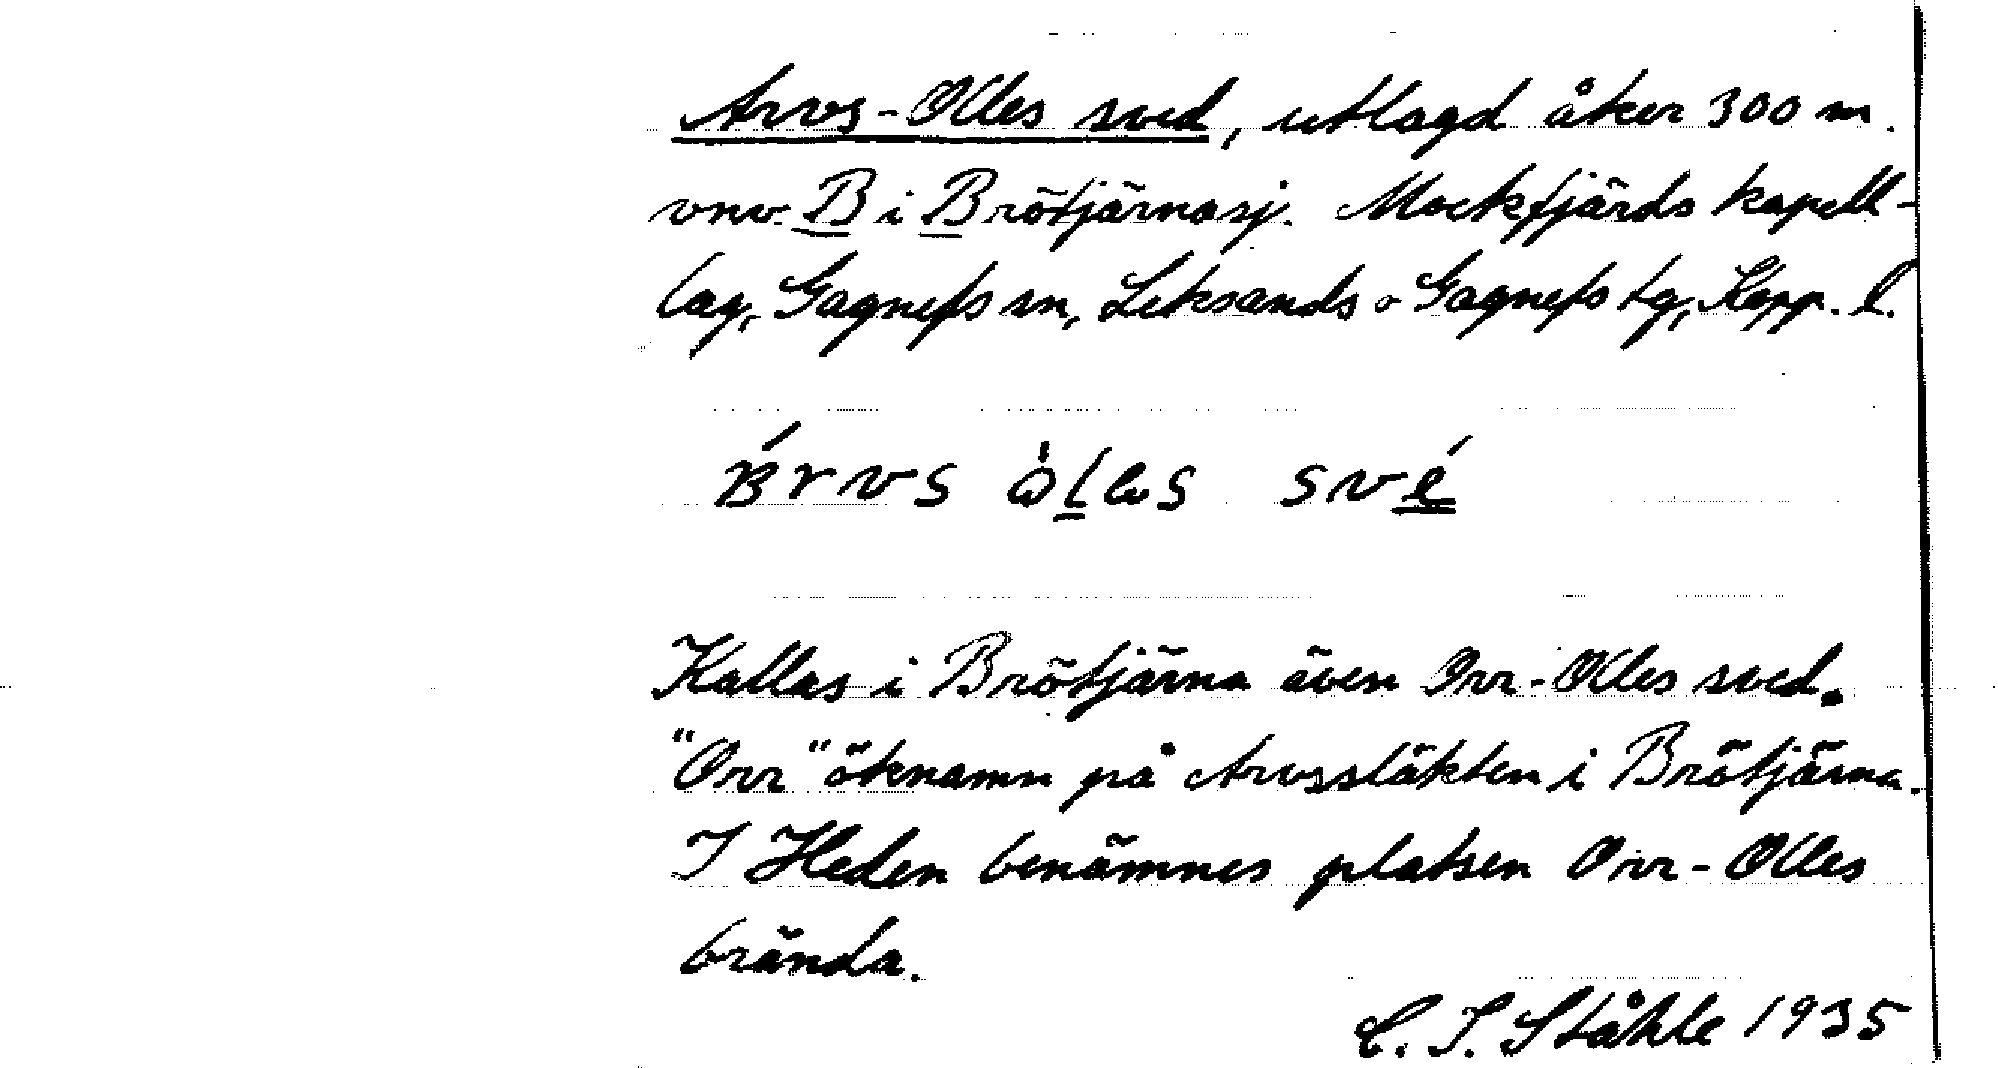 Arvs-Olles sved, utlagd åker 300 m.
vnv. B i Brötjärnasj. Mockfjärds kapell-
lag, Gagnefs sn, Leksands o Gagnefs tg, Kopp. l.
Kallas i Brötjärna även Orr-Olles sved.
"Orr" öknamn på Arvssläkten i Brötjärna.
I Heden benämnes platsen Orr-Olles
brända.
C. I. Ståhle 1935